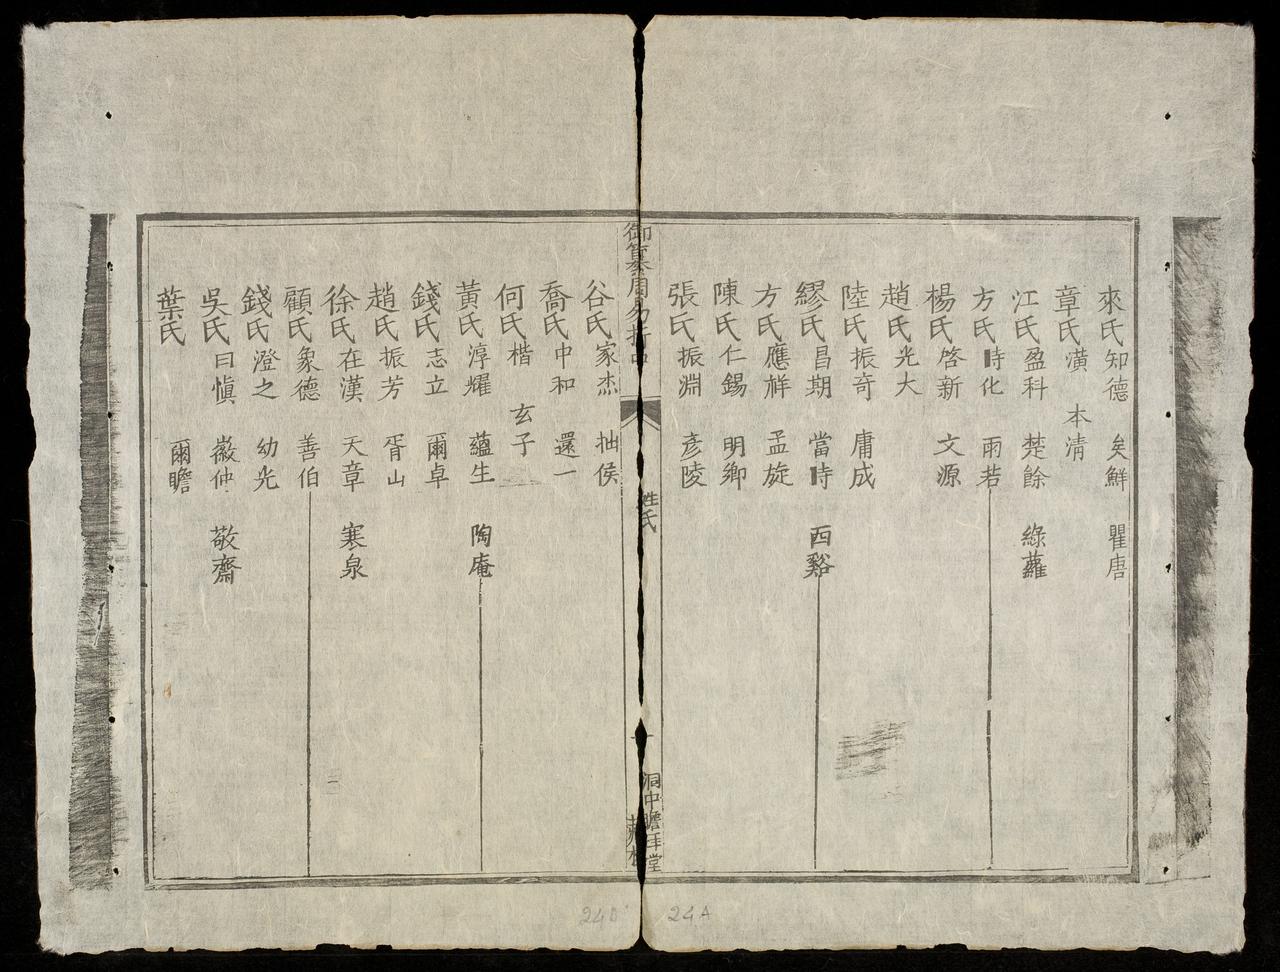 來氏知德 矣鮮 瞿唐
章氏潢 本清
江氏盈科 楚餘 綠蘿
方氏時化 雨若
楊氏啓新 文源
趙氏光大
陸氏振奇 庸成
繆氏昌期 當時 西谿
方氏應祥 孟旋
陳氏仁錫 明卿
張氏振淵 彥陵
御纂周易折中
姓氏
洞中瞻拜堂
藏板
谷氏家杰 拙侯
喬氏中和 還一
何氏楷 玄子
黃氏淳耀 蘊生 陶庵
錢氏志立 爾卓
趙氏振芳 胥山
徐氏在漢 天章 寒泉
顧氏象德 善伯
錢氏澄之 幼光
吳氏曰愼 徽仲 敬齋
葉氏 爾瞻
24B
24A